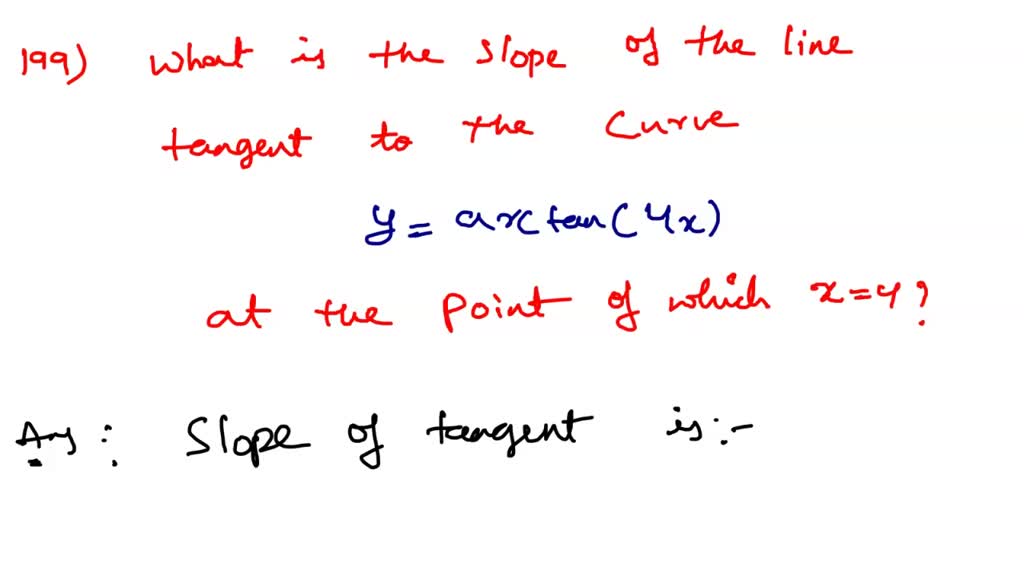 199) What is the slope of the line
tangent to the curve
y = arctan(4x)
at the point of which x=4?
Ans: Slope of tangent is:-